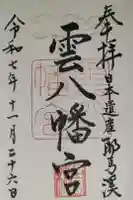 奉拝
日本遺産 耶馬渓
雲八幡宮
令和七年十一月二十六日